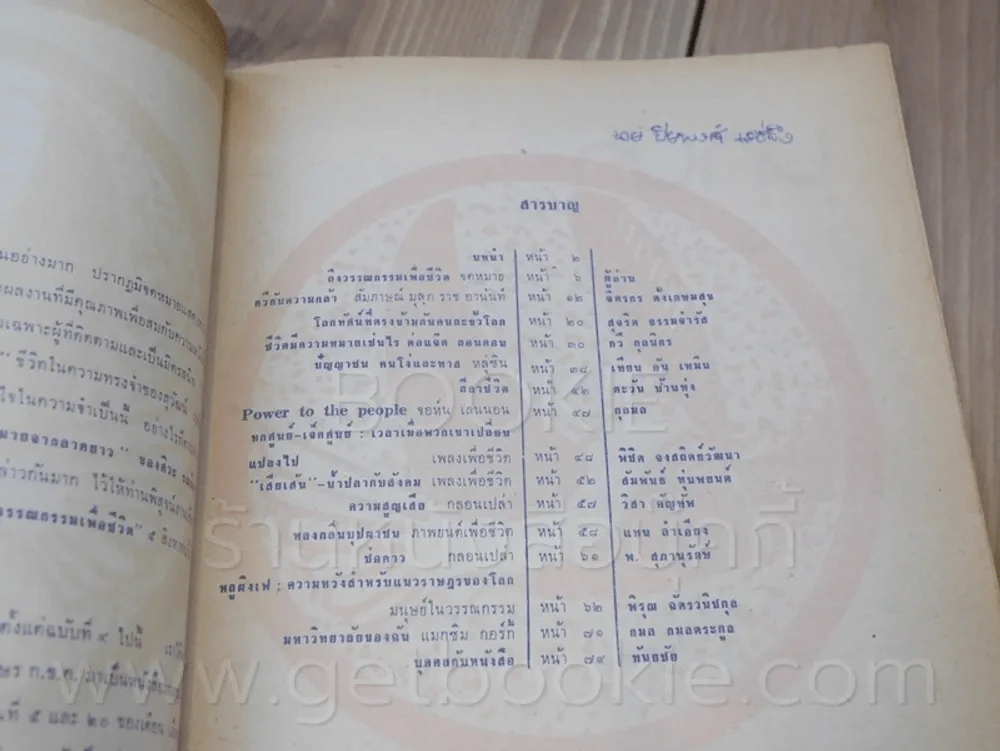 นอย่างมาก ปรากฏมีจดหมายแสดง
ผลงานที่มีคุณภาพเพื่อสมกับความ
เฉพาะผู้ที่ติดตามและเป็นมิตรสนิท
ชีวิตในความทรงจำของสุวัฒน์
ใจในความจำเป็นนี้ อย่างไรก็
มายจากลาดยาว" ของ
ล่าวกันมาก ไว้ให้ท่านพิสูจน์
วรรณกรรมเพื่อชีวิต" ๕
ตั้งแต่ฉบับที่ ๔ ไปนี้ เรา
ก.ข.ค. มาเป็นหนังสือ
นที่ ๕ และ ๒๐ ของเดือน
นาย
สารบาญ
บทนำ หน้า ๒
ถึงวรรณกรรมเพื่อชีวิต จดหมาย หน้า ๖ ผู้อ่าน
กวีกับความกล้า สัมภาษณ์ มุลกุ ราช อานันท์ หน้า ๑๒ จิตรกร ตั้งเกษมสุข
โลกทัศน์ที่ตรงข้ามกันคนละขั้วโลก หน้า ๒๐ สุจริต ธรรมจำรัส
ชีวิตมีความหมายเช่นไร ต่อแจ๊ค ลอนดอน หน้า ๓๐ กวี กุลนิกร
ปัญญาชน คนโง่และทาส หลู่ซิ่น หน้า ๓๔ เทียน อัน เหมิน
ลีลาชีวิต หน้า ๔๒ ตะวัน บ้านทุ่ง
Power to the people จอห์น เลนนอน หน้า ๔๗ กุลมล
หกศูนย์-เจ็ดศูนย์ : เวลาเมื่อพวกเขาเปลี่ยน
แปลงไป เพลงเพื่อชีวิต หน้า ๔๘ พิชิต จงสถิตย์วัฒนา
"เสียเส้น"-น้ำปลากับสังคม เพลงเพื่อชีวิต หน้า ๕๒ สัมพันธ์ ทุบพยนต์
ความสูญเสีย กลอนเปล่า หน้า ๕๗ วิสา คัญทัพ
ท่องถิ่นบุปผาชน ภาพยนต์เพื่อชีวิต หน้า ๕๘ แทน ลำเอียง
ช่อดาว กลอนเปล่า หน้า ๖๑ พ. สุภานุรักษ์
พลูผิงเฟ : ความหวังสำหรับแนวราษฎรของโลก
มนุษย์ในวรรณกรรม หน้า ๖๒ พิรุณ ฉัตรวนิชกุล
มหาวิทยาลัยของฉัน แมกซิม กอร์กี้ หน้า ๗๑ กมล กมลตระกูล
บุคคลกับหนังสือ หน้า ๗๙ ทันธชัย
BOOKIE
ร้านหนังสือบุ๊คกี้
www.getbookie.com